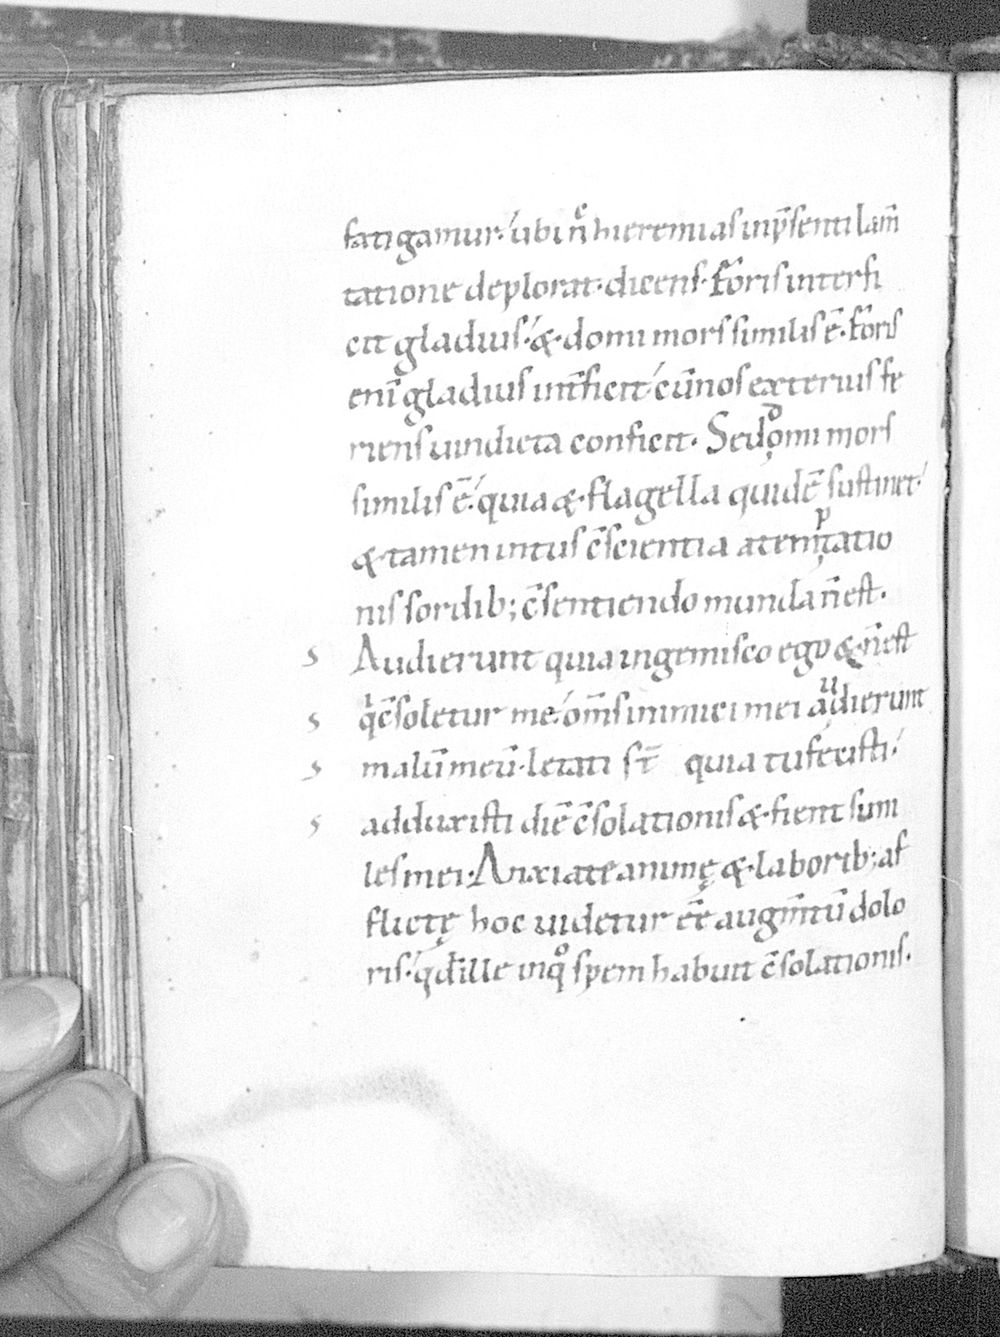 fatigamur· ubi nͦ hieremias in p̄senti lam̄
tatione deplorat· dicens· Foris interfi
cit gladius· & domi mors similis ē· Foris
eni̅ gladius int̅ficit cū nos exterius fe
riens uindicta conficit· Sed domi mors
similis ē· quia & flagella quidē sustinet·
& tamen intus c̅scientia a temptatio
nis sordib; c̅sentiendo munda n̅ est·
s Audierunt quia ingemisco ego & n̅ est
s qͥ c̅soletur me· om̅s inimici mei audierunt
s malū meū· letati st̅ quia tu fecisti·
s adduxisti diē c̅solationis & fient simi
les mei· Anxiate animę & laborib; af
flictę hoc uidetur e̅e̅ augm̅tū dolo
ris· qd̅ ille in qͦ spem habuit c̅solationis·